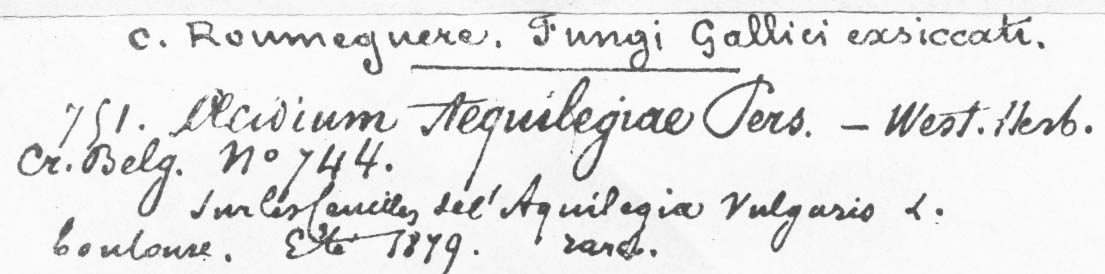 C. Roumeguere. Fungi Gallici exsiccati.
751. Æcidium Aequilegiae Pers. – West. Herb.
Cr. Belg. No 744.
Sur les feuilles de l'Aquilegia Vulgaris L.
Toulouse. Eté 1879. rare.